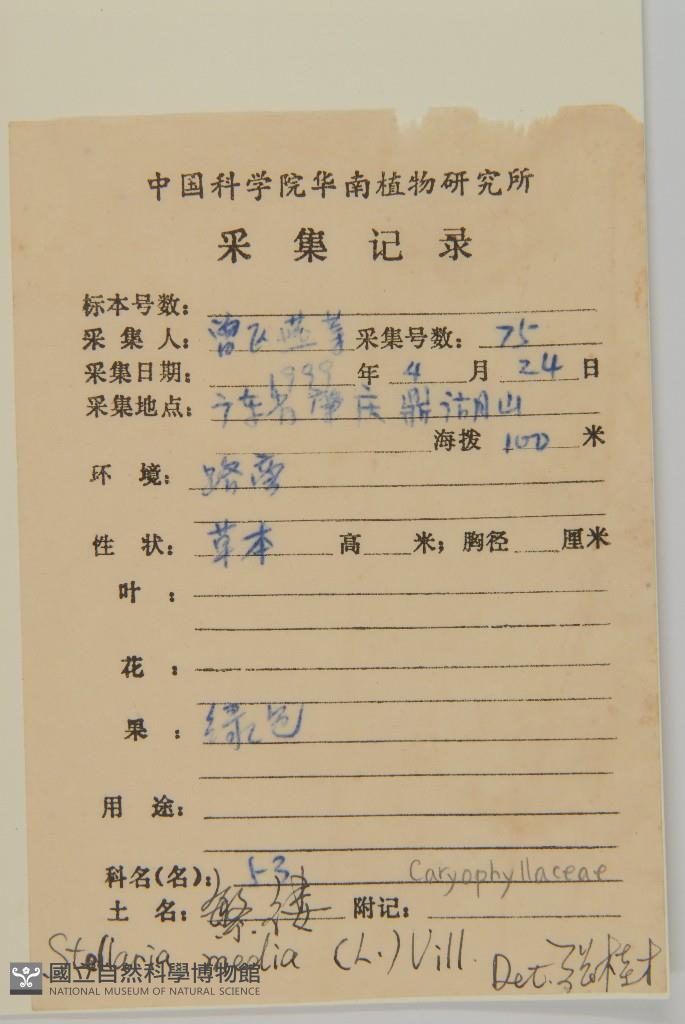 中国科学院华南植物研究所
采集记录
标本号数：
采集人：曾飞燕等 采集号数：75
采集日期：1999年4月24日
采集地点：广东省肇庆鼎湖山
海拨100米
环境：路旁
性状：草本 高 米；胸径 厘米
叶：
花：
果：绿色
用途：
科名(名)：53 Caryophyllaceae
土名：繁缕 附记：
Stellaria media (L.) Vill. Det. 桂才
國立自然科學博物館
NATIONAL MUSEUM OF NATURAL SCIENCE